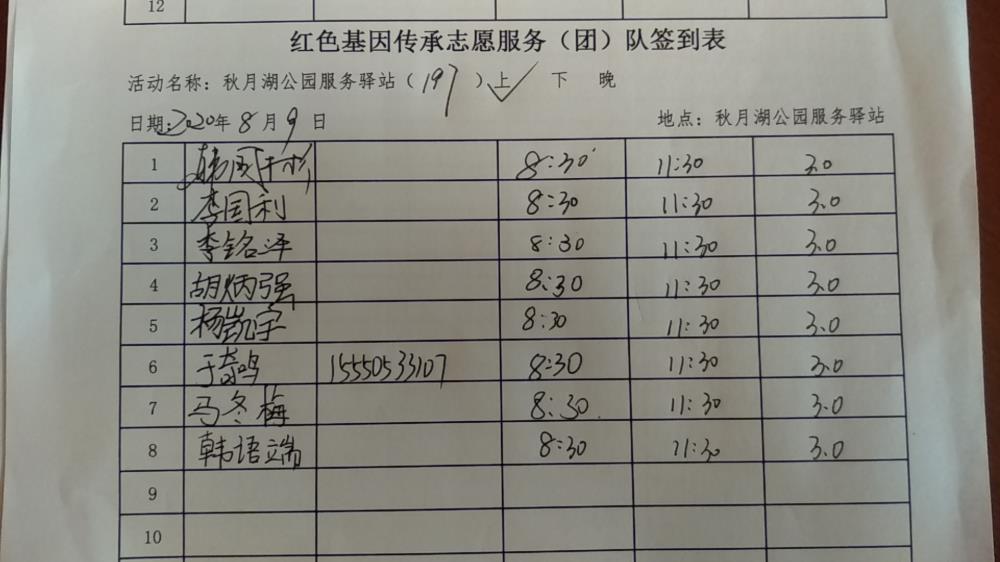 12
红色基因传承志愿服务（团）队签到表
活动名称：秋月湖公园服务驿站（197）上√ 下 晚
日期：2020年8月9日 地点：秋月湖公园服务驿站
1 8:30 11:30 3.0
2 李国利 8:30 11:30 3.0
3 李铭泽 8:30 11:30 3.0
4 胡炳强 8:30 11:30 3.0
5 杨凯宇 8:30 11:30 3.0
6 于奇鸣 15550533107 8:30 11:30 3.0
7 马冬梅 8:30 11:30 3.0
8 韩语端 8:30 11:30 3.0
9
10